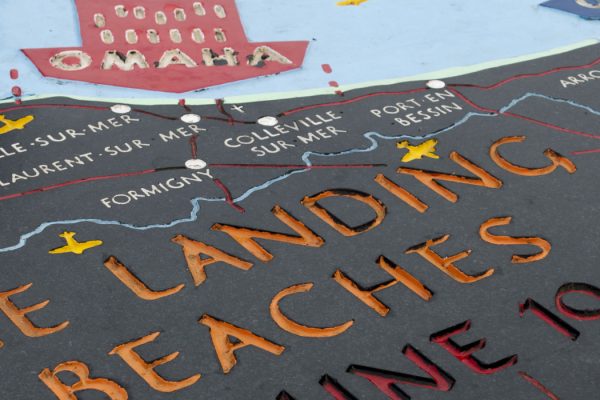 OMAHA
LLE-SUR-MER
LAURENT-SUR MER
COLLEVILLE
SUR MER
PORT EN
BESSIN
ARRO
FORMIGNY
E LANDING
BEACHES
BEACHES
UNE 10